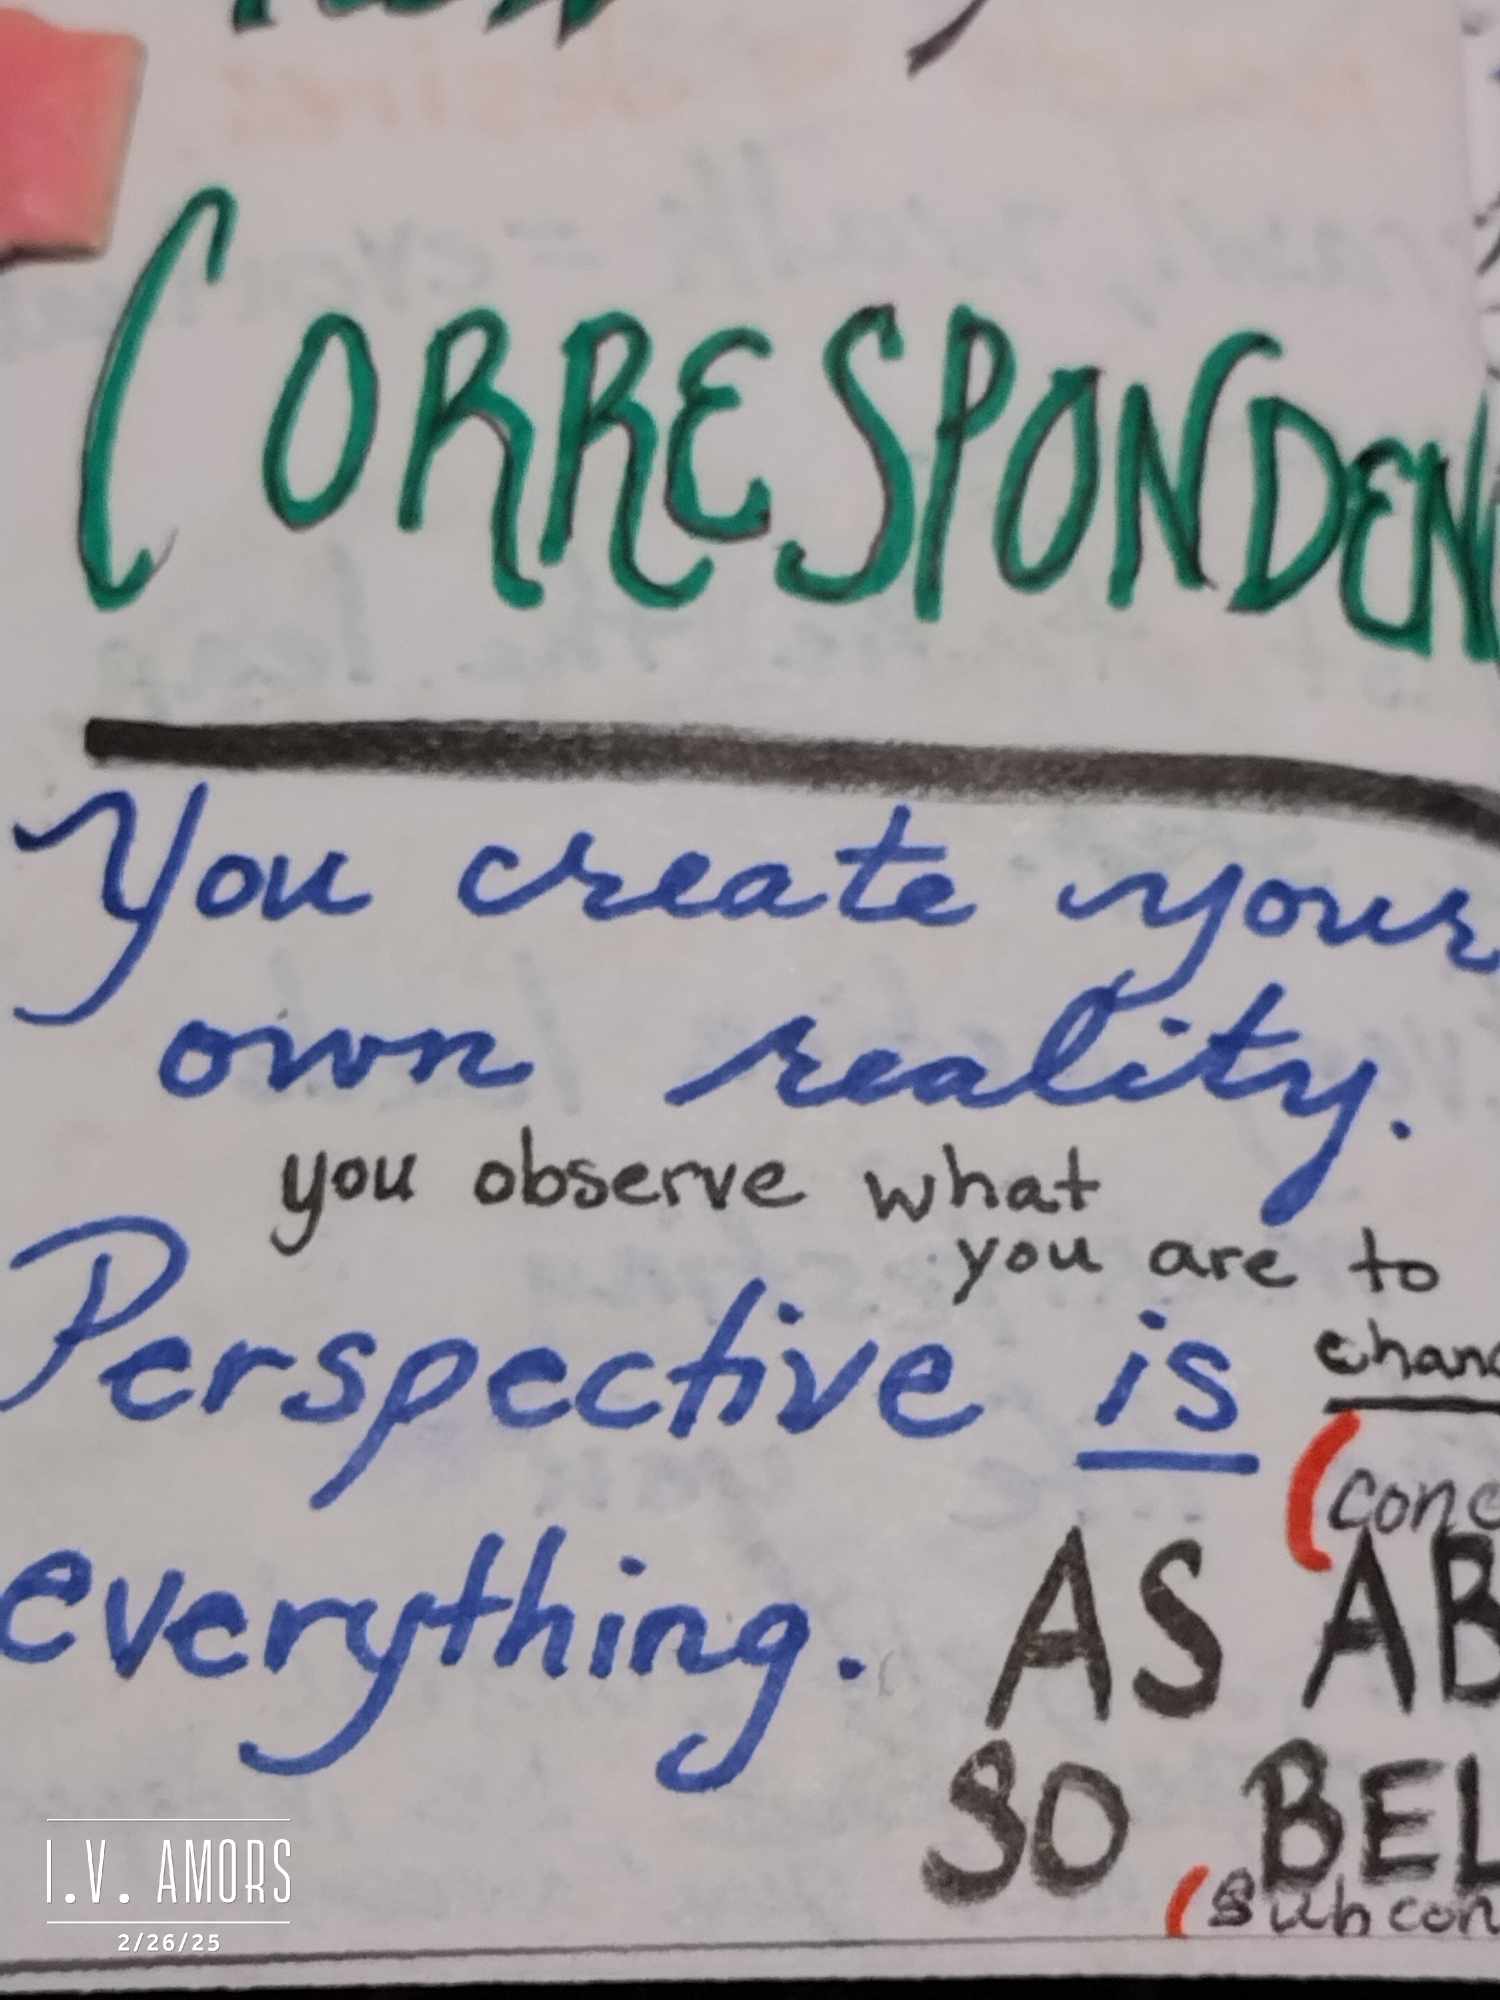 CORRESPONDEN
You create your
own reality.
you observe what
you are to
Perspective is
chan
(conc
everything.
AS AB
SO BEL
(subcon
I.V. AMORS
2/26/25